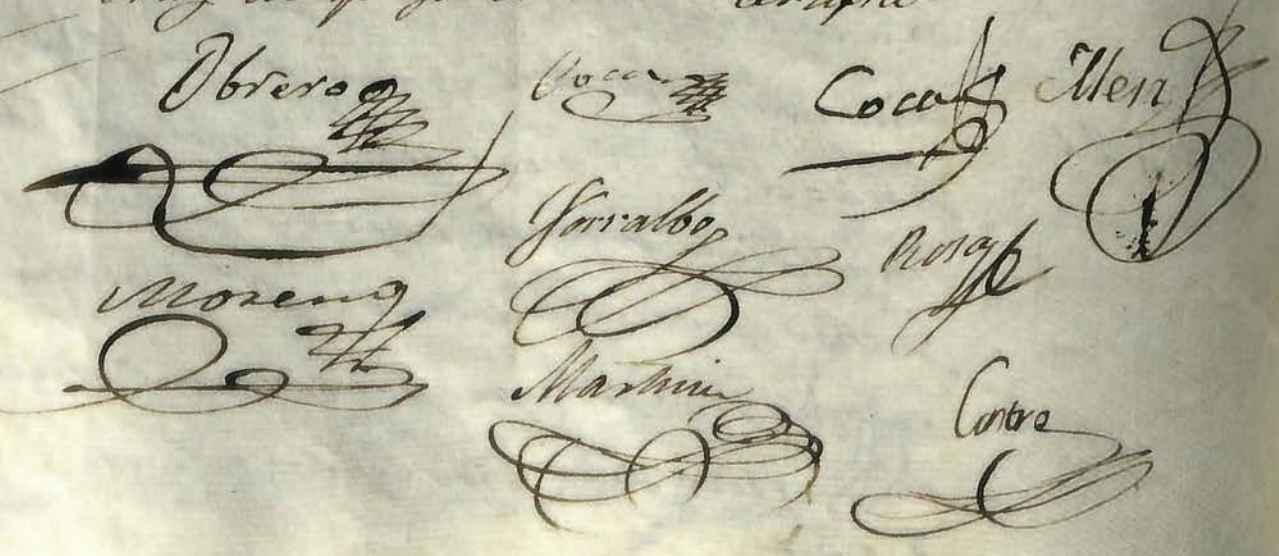 Obrero Coca Coca Men
Torralbo Rosa
Moreno
Martin
Contre